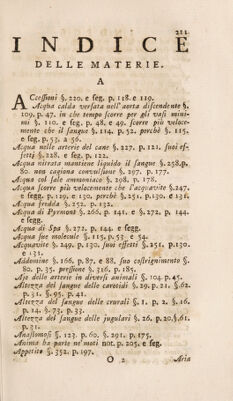 211
INDICE
DELLE MATERIE.
A
ACcessioni §. 220. e seg. p. 118. e 119.
Acqua calda versata nell'aorta discendente §.
109. p. 47. in che tempo scorre per gli vasi mini-
mi §. 110. e seg. p. 48. e 49. scorre più veloce-
mente che il sangue §. 114. p. 52. perchè §. 115.
e seg. p. 53. a 56.
Acqua nelle arterie del cane §. 227. p. 121. suoi ef-
fetti §. 228. e seg. p. 122.
Acqua nitrata mantiene liquido il sangue §. 258. p.
80. non cagiona convulsione §. 297. p. 177.
Acqua col sale ammoniaco §. 298. p. 178.
Acqua scorre più velocemente che l'acquavite §. 247.
e segg. p. 129. e 130. perchè §. 251. p. 130. e 131.
Acqua fredda §. 252. p. 132.
Acqua di Pyrmont §. 266. p. 141. e §. 272. p. 144.
e segg.
Acqua di Spa §. 272. p. 144. e segg.
Acqua sue molecule §. 115. p. 53. e 54.
Acquavite §. 249. p. 130. suoi effetti §. 251. p. 130.
e 131.
Addomine §. 166. p. 87. e 88. suo costrignimento §.
80. p. 35. pressione §. 316. p. 185.
Aja delle arterie in diversi animali §. 104. p. 45.
Altezza del sangue delle carotidi §. 29. p. 21. §. 62.
p. 31. §. 95. p. 41.
Altezza del sangue delle crurali §. 1. p. 2. §. 16.
p. 14. §. 73. p. 33.
Altezza del sangue delle jugulari §. 26. p. 20. §. 61.
p. 31.
Anastomosi §. 123. p. 60. §. 291. p. 175.
Anima ha parte ne' moti not. p. 205. e seg.
Appetito §. 352. p. 197.
O 2 Aria